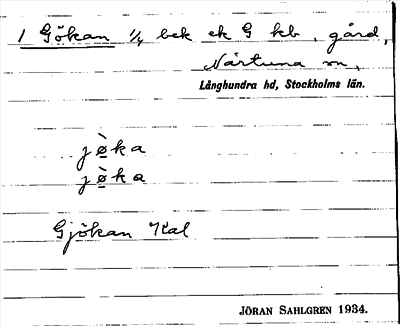 1 Gökan 1/4 bek ek G kb, gård,
Närtuna sn,
Långhundra hd, Stockholms län.
jø̀ka
jø̀ka
Gjökan Kal
JÖRAN SAHLGREN 1934.